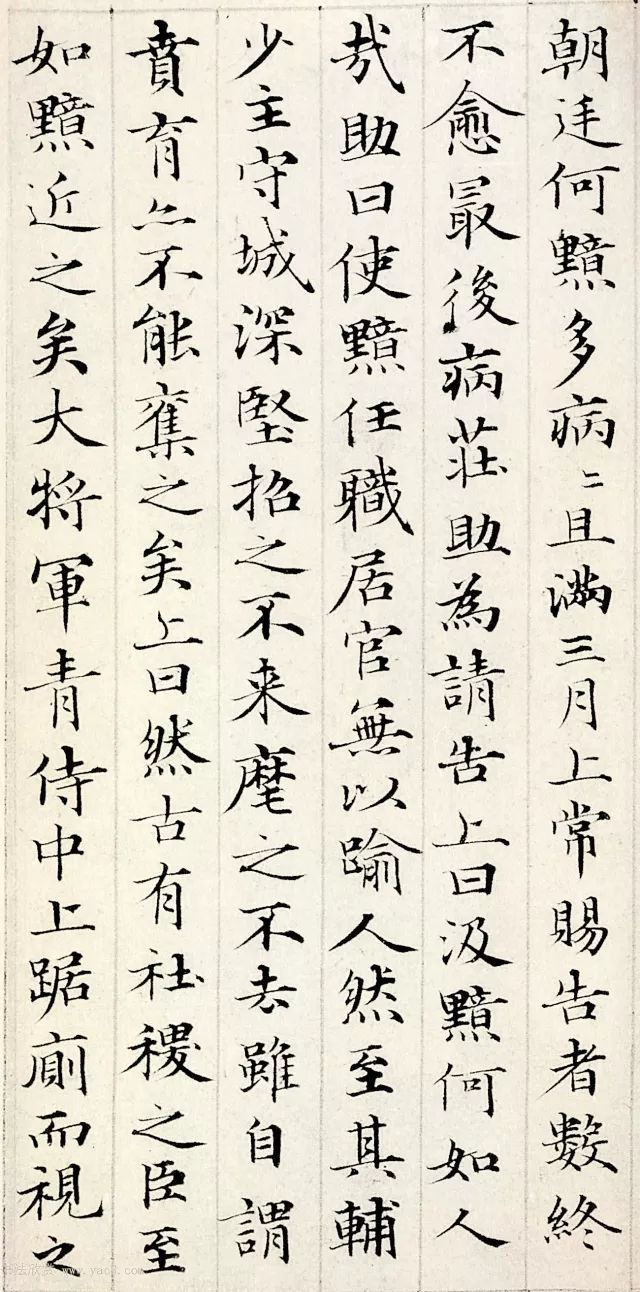 朝廷何黯多病〻且滿三月上常賜告者數終
不愈最後病莊助為請告上曰汲黯何如人
㢤助曰使黯任職居官無以踰人然至其輔
少主守城深堅招之不来麾之不去雖自謂
賁育亦不能奪之矣上曰然古有社稷之臣至
如黯近之矣大將軍青侍中上踞廁而視之
www.yac8.com